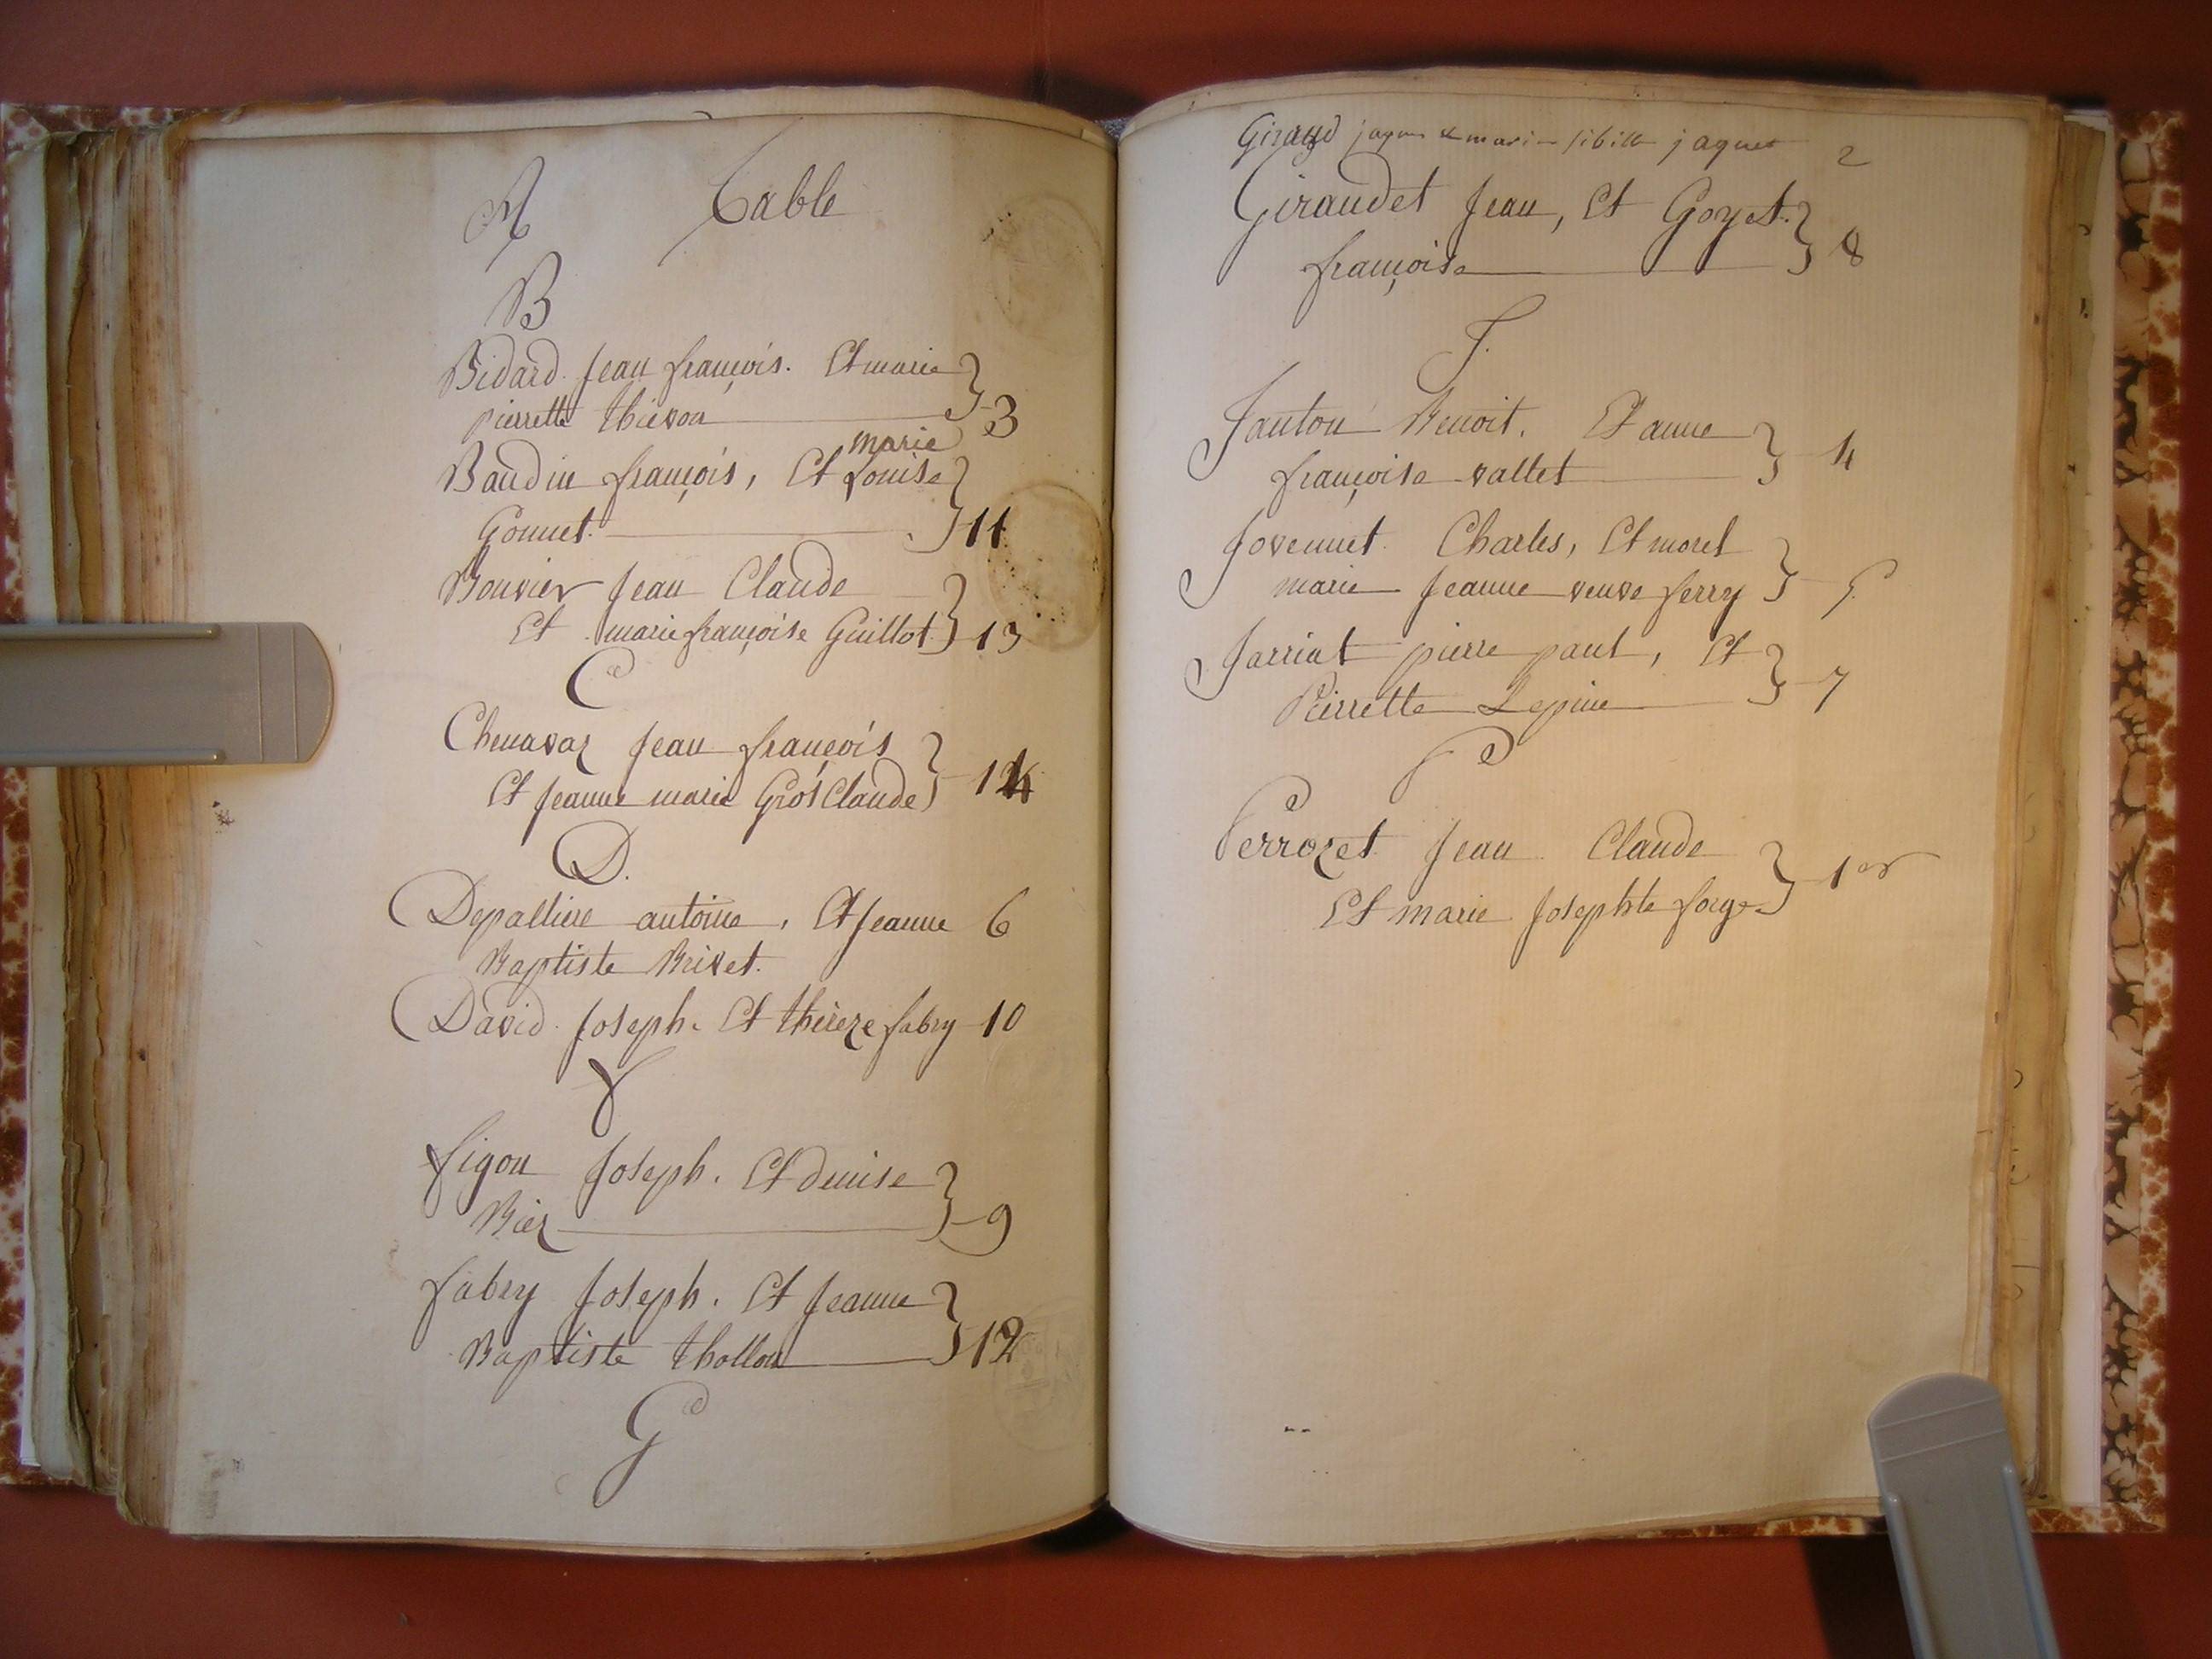 A Table
B
Bidard Jean françois. Et marie
pierrette thievon 3
marie
Baudin françois, Et Louise
Gonnet. 11
Bouvier Jean Claude
Et marie françoise Guillot. 13
C
Chenavaz Jean françois
Et Jeanne marie Gros Claude 14
D.
Depalliere antoine, Et Jeanne 6
Baptiste Brivet.
David Joseph. Et thèreze fabry 10
F
figon Joseph. Et denise
Biez 9
fabry Joseph. Et Jeanne
Baptiste thollon 12
G
Giraud jaques & mari sibille jaquet 2
Giraudet Jean, Et Goyet.
françoise 8
J.
Janton Benoit. Et anne
françoise vallet 4
Jovennet Charles, Et morel
marie Jeanne veuve ferry 5
Jarriat pierre paul, Et
Pierrette Lepine 7
P
Perrozet Jean Claude
Et marie Josephte forge 1er